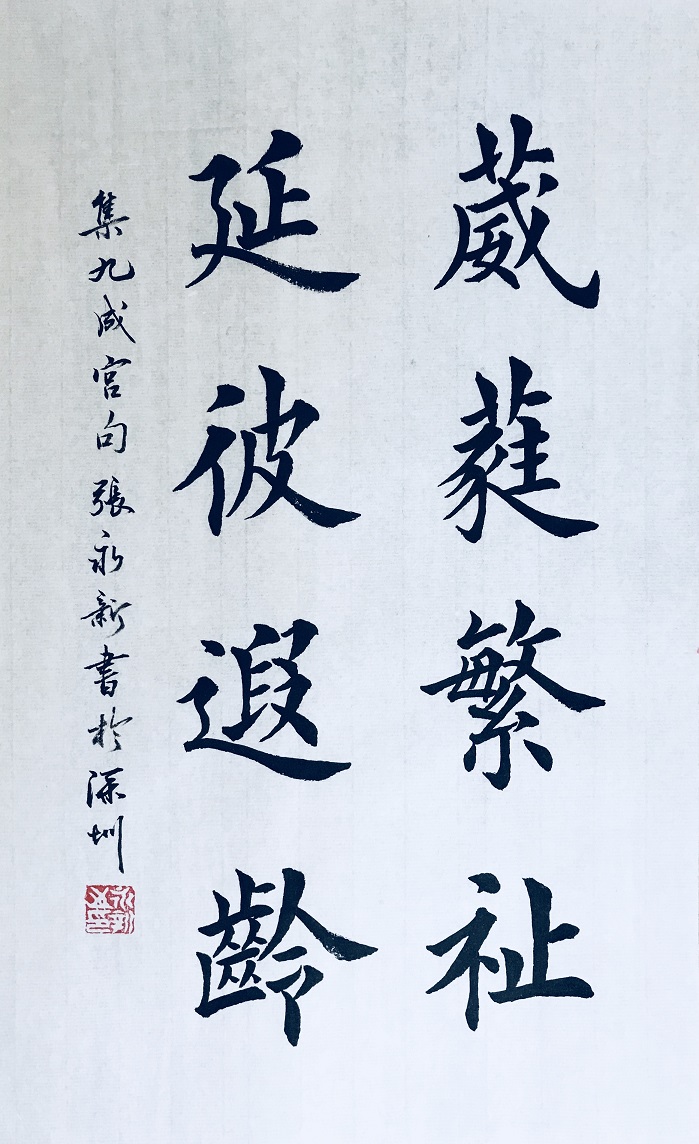 葳蕤繁祉
延彼遐齡
集九成宮句張永新書於深圳